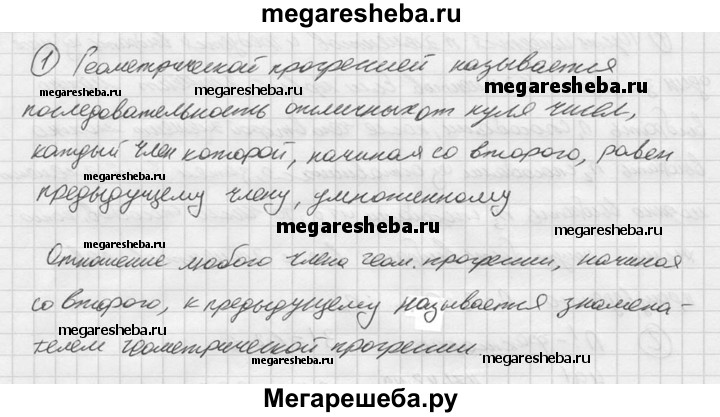 megaresheba.ru
① Геометрической прогрессией называется
megaresheba.ru
megaresheba.ru
megaresheba.ru
последовательность отличных от нуля чисел,
каждый член которой, начиная со второго, равен
megaresheba.ru
предыдущему члену, умноженному
megaresheba.ru
megaresheba.ru
megaresheba.ru
Отношение любого члена геом. прогрессии, начиная
со второго, к предыдущему называется знамена-
megaresheba.ru
телем геометрической прогрессии
megaresheba.ru
Мегарешеба.ру